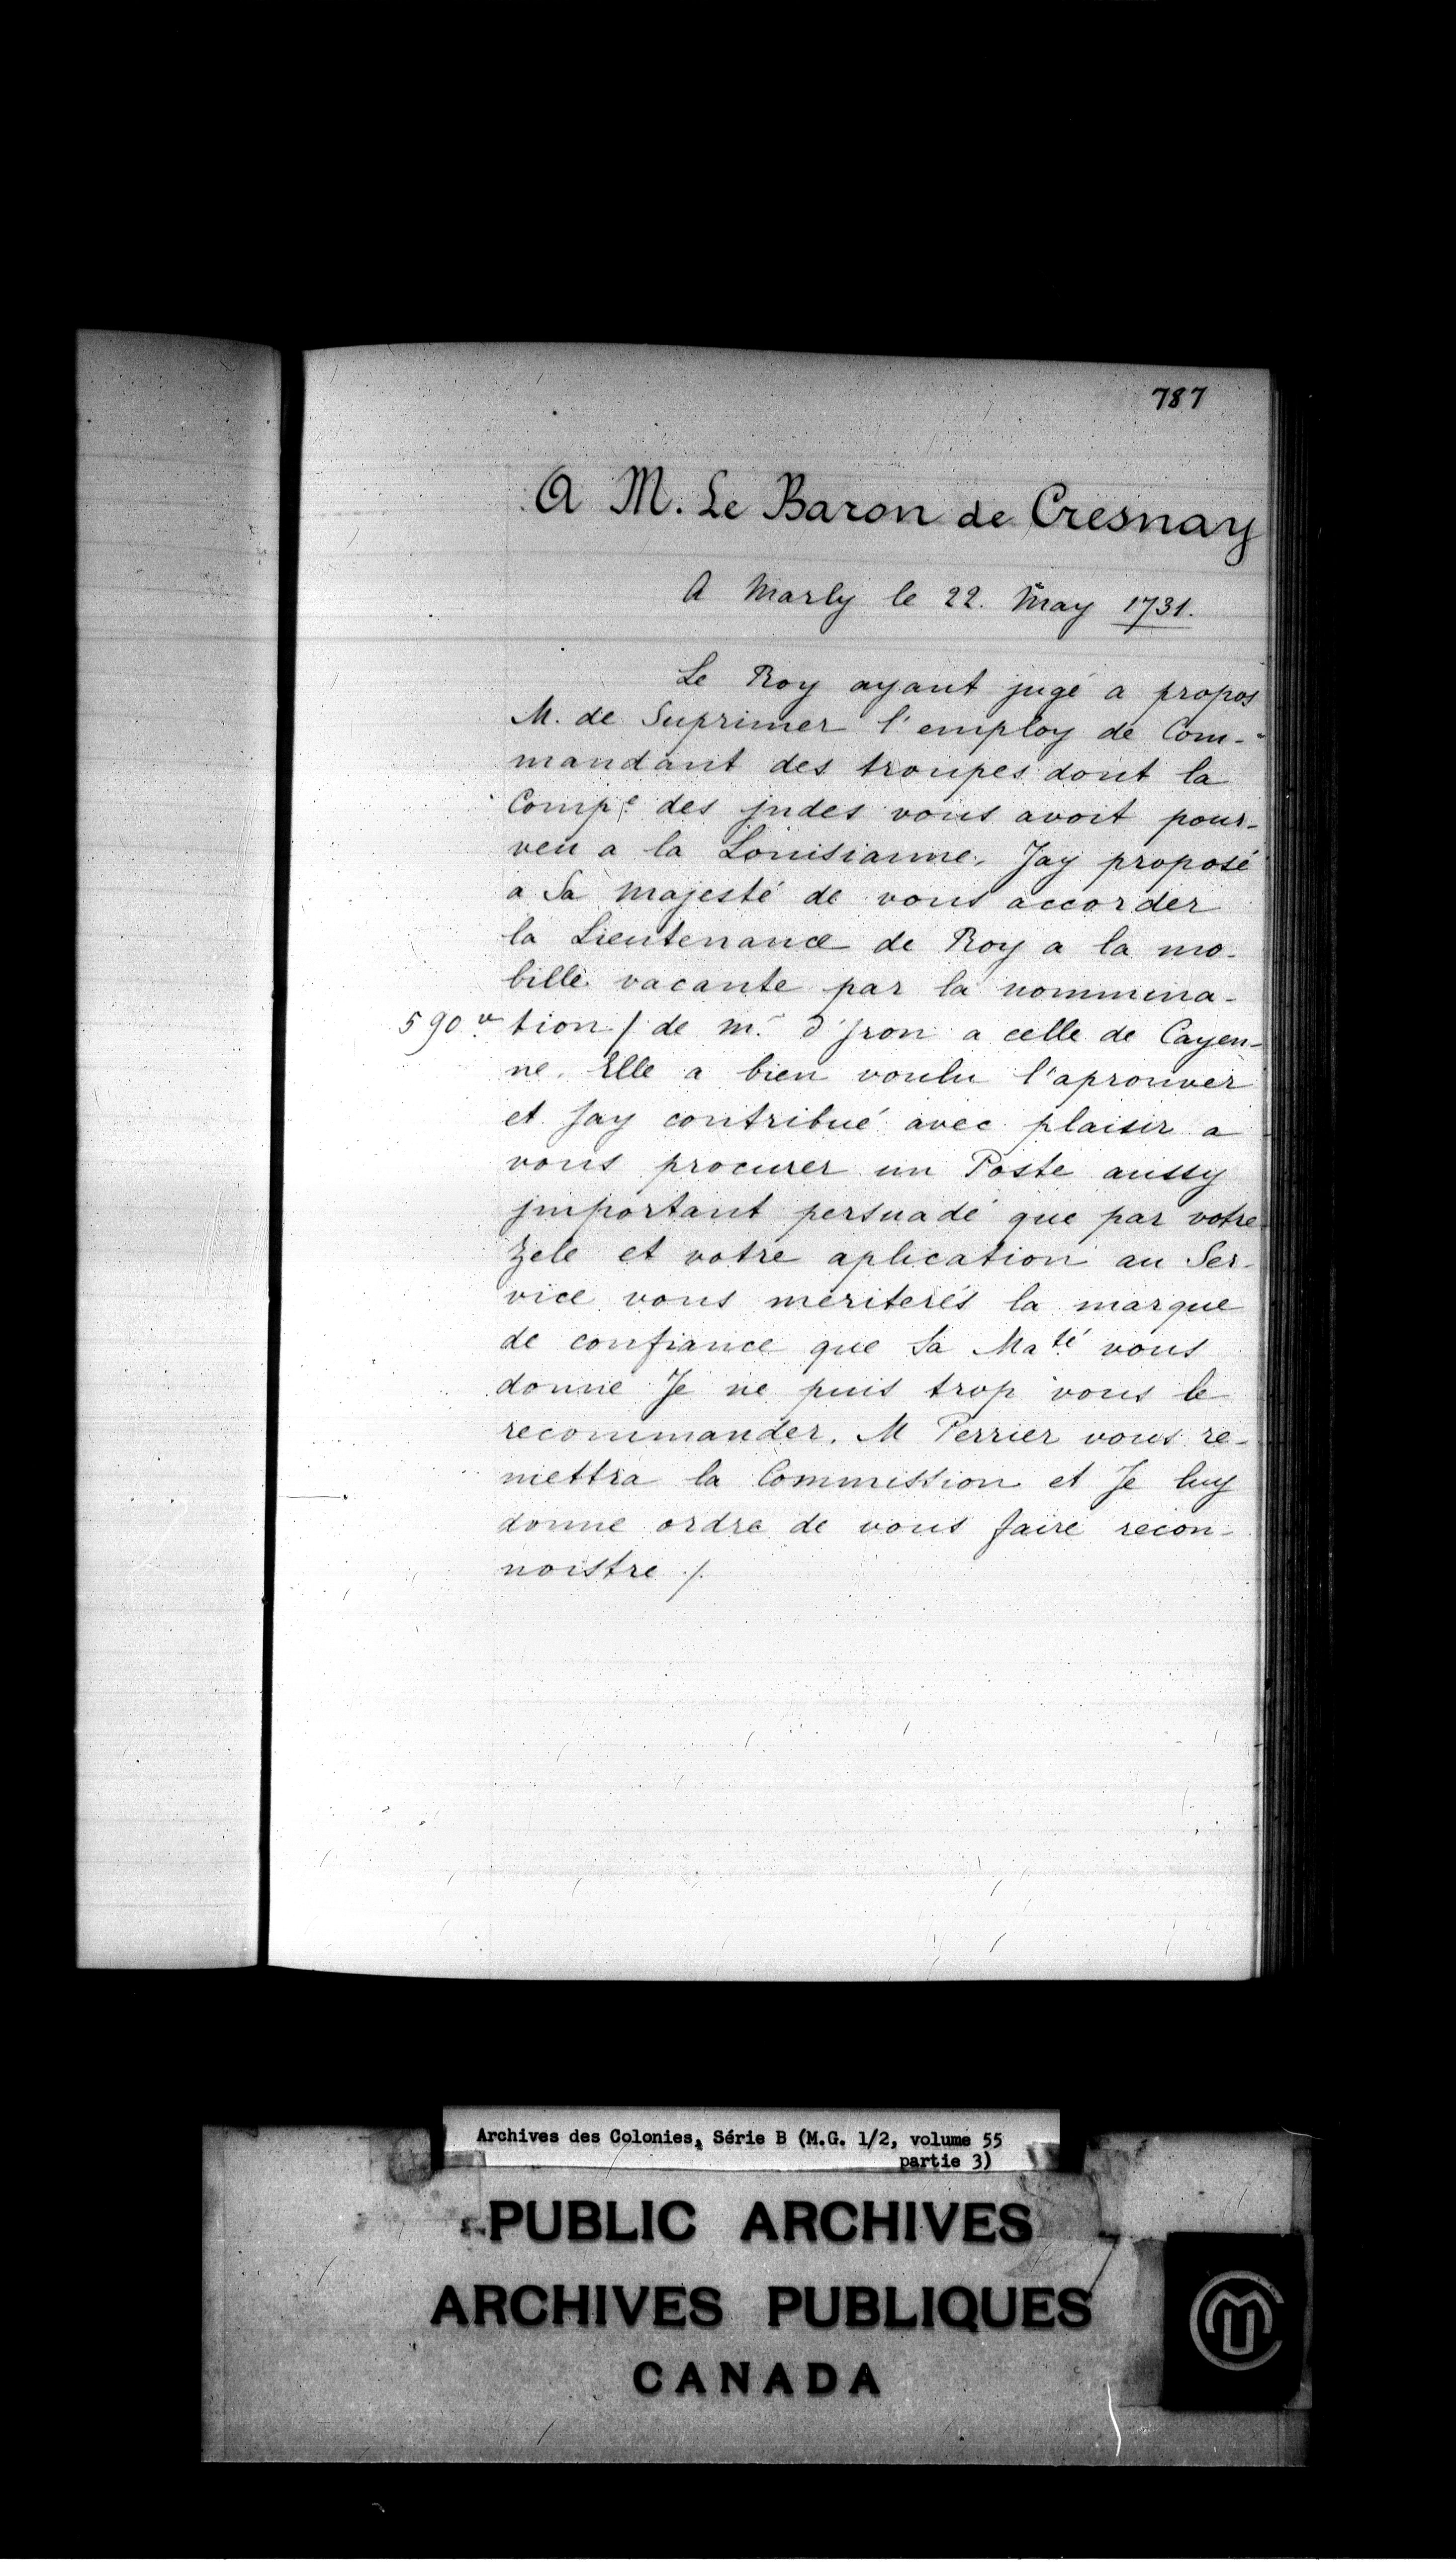 787
A M. Le Baron de Cresnay
A Marly le 22. May 1731.
Le Roy ayant jugé a propos
M. de Suprimer l'employ de Com-
mandant des troupes dont la
Compe. des jndes vous avoit pour-
veu a la Louisianne. Jay proposé
a Sa Majesté de vous accorder
la Lieutenance de Roy a la mo-
bille vacante par la nommina-
590 v. tion / de m. d'Jron a celle de Cayen-
ne. Elle a bien voulu l'aprouver
et Jay contribué avec plaisir a
vous procurer un Poste aussy
jmportant persuadé que par votre
Zele et votre aplication au Ser-
vice vous meriterés la marque
de confiance que Sa Maté vous
donne Je ne puis trop vous le
recommander. M Perrier vous re-
mettra la Commission et Je luy
donne ordre de vous faire recon-
noistre /.
Archives des Colonies, Série B (M.G. 1/2, volume 55
partie 3)
PUBLIC ARCHIVES
ARCHIVES PUBLIQUES
CANADA